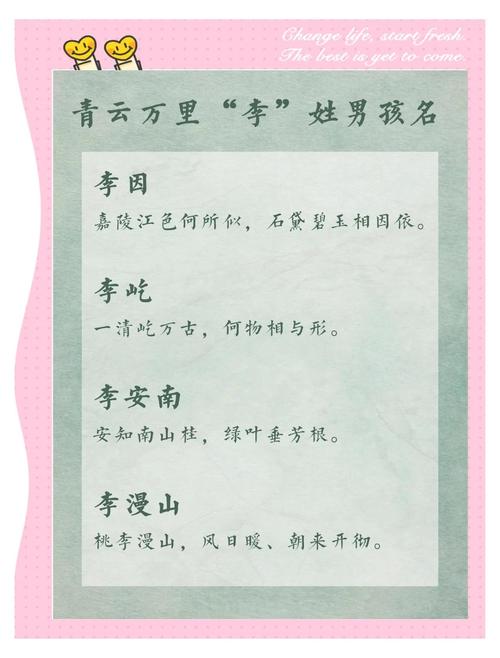 Change life, start fresh.
The best is yet to come.
青云万里“李”姓男孩名
李因
嘉陵江色何所似，石黛碧玉相因依。
李屹
一清屹万古，何物相与形。
李安南
安知南山桂，绿叶垂芳根。
李漫山
桃李漫山，风日暖、朝来开彻。